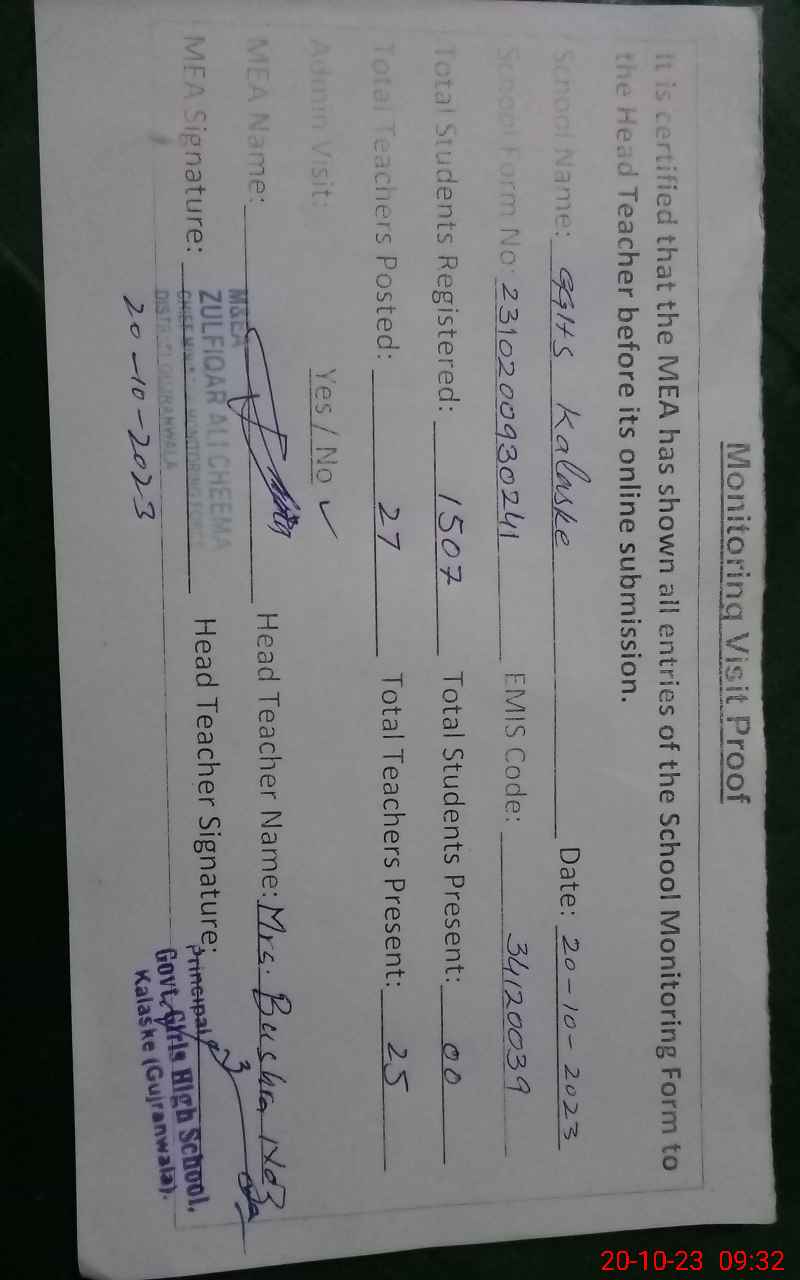 Monitoring Visit Proof
It is certified that the MEA has shown all entries of the School Monitoring Form to
the Head Teacher before its online submission.
School Name: GGHS Kalaske Date: 20-10-2023
School Form No: 2310200930241 EMIS Code: 34120039
Total Students Registered: 1507 Total Students Present: 00
Total Teachers Posted: 27 Total Teachers Present: 25
Admin Visit: Yes / No ✓
MEA Name: Head Teacher Name: Mrs. Bushra
M&EA
ZULFIQAR ALI CHEEMA
CHIEF MINISTER MONITORING FORCE
DISTRICT GUJRANWALA
MEA Signature: Head Teacher Signature:
20-10-2023
Principal
Govt. Girls High School,
Kalaske (Gujranwala).
20-10-23 09:32